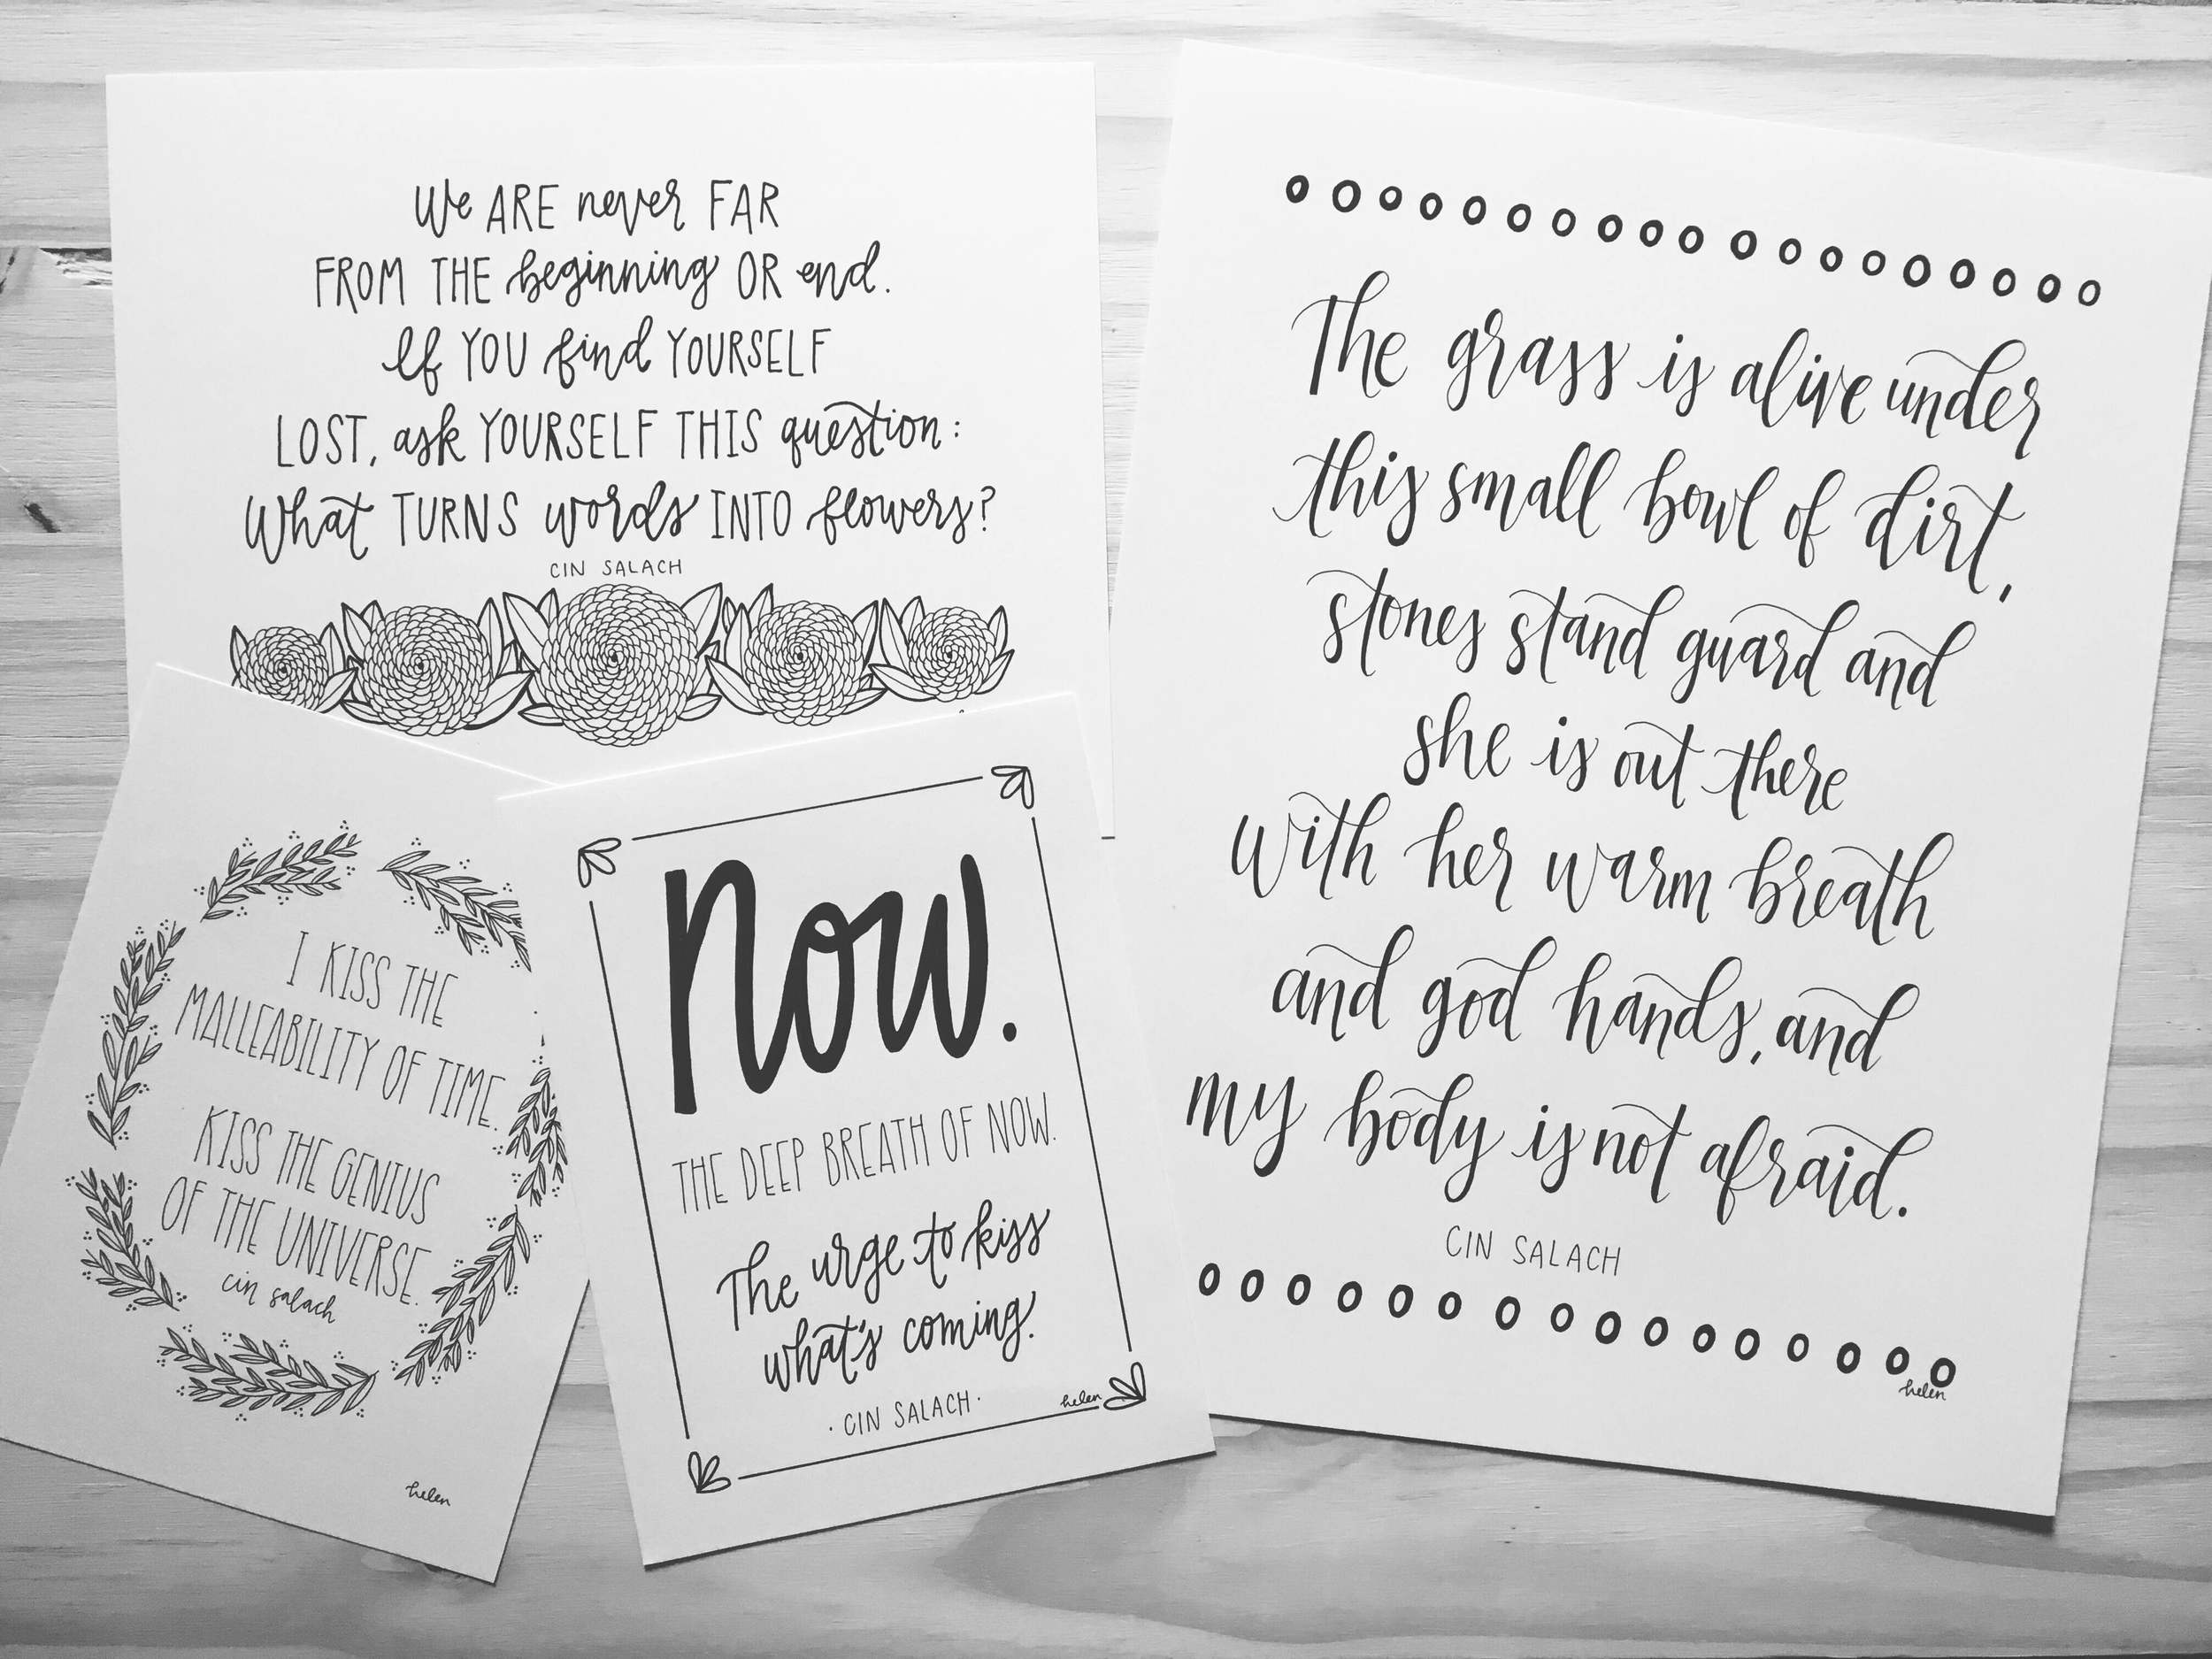 We ARE never FAR
FROM THE beginning OR end.
If YOU find YOURSELF
LOST, ask YOURSELF THIS question:
What TURNS words INTO flowers?
CIN SALACH
I KISS THE
MALLEABILITY OF TIME.
KISS THE GENIUS
OF THE UNIVERSE.
cin salach
helen
now.
THE DEEP BREATH OF NOW.
The urge to kiss
what's coming.
· CIN SALACH ·
helen
The grass is alive under
this small bowl of dirt,
stones stand guard and
she is out there
with her warm breath
and god hands, and
my body is not afraid.
CIN SALACH
helen